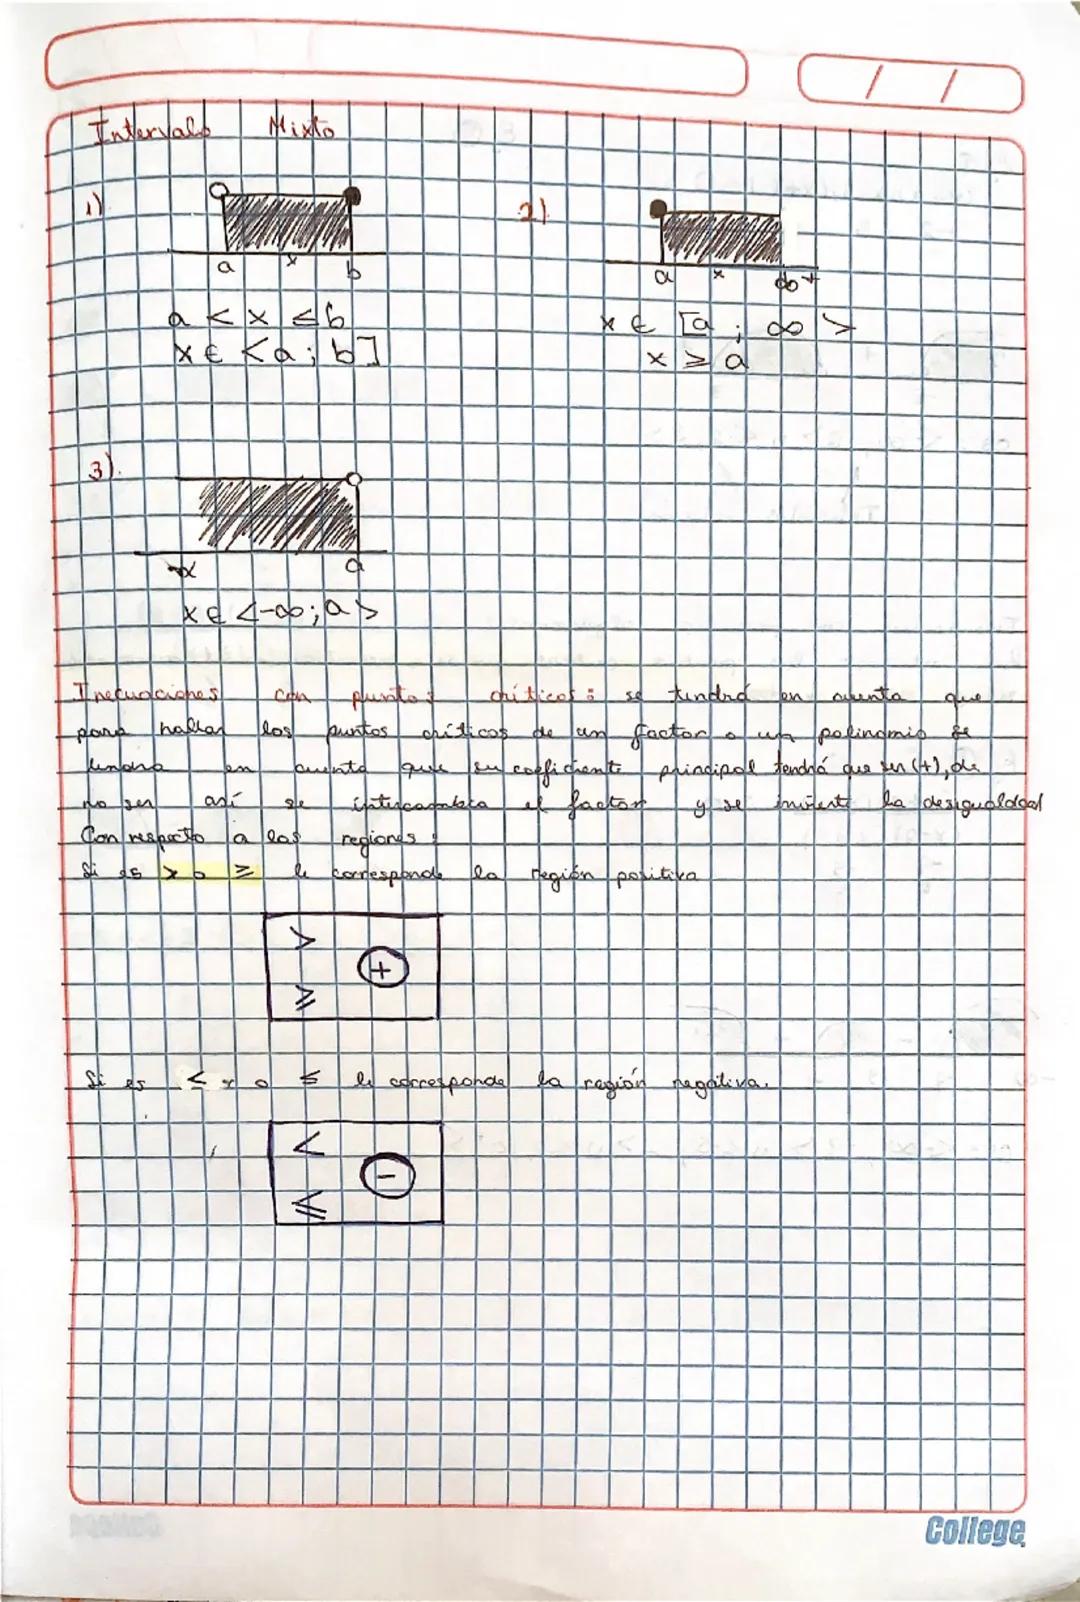 / /
Intervalo Mixto
1)
a x b
a < x ≤ b
x ∈ <a ; b]
2)
a x ∞+
x ∈ [a ; ∞ >
x ≥ a
3).
-∞ a
x ∈ <-∞; a>
Inecuaciones con puntos críticos: se tendrá en cuenta que
para hallar los puntos críticos de un factor o un polinomio se
tendrá en cuenta que su coeficiente principal tendrá que ser (+), de
no ser así se intercambia el factor y se invierte la desigualdad
Con respecto a las regiones:
Si es > o ≥ le corresponde la región positiva
> +
≥
Si es < y o ≤ le corresponde la región negativa.
< -
≤
College